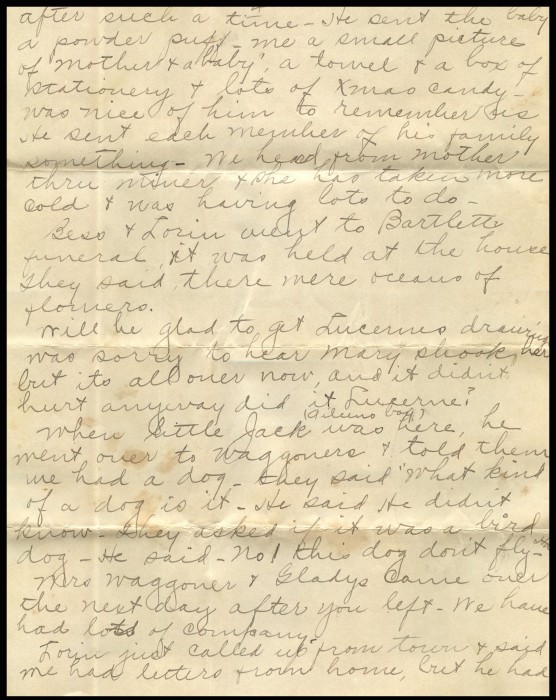 after such a time - He sent the baby
a powder puff - me a small picture
of "Mother & a baby", a towel & a box of
stationery & lots of Xmas candy -
was nice of him to remember us
He sent each member of his family
something - We heard from Mother
thru & she has taken more
cold & was having lots to do -
Bess & Lorin went to Bartletts
funeral, it was held at the house
they said, there were oceans of
flowers.
Will be glad to get Lucernes drawing
was sorry to hear Mary shook her
but its all over now, and it didn't
hurt anyway did it Lucerne?
When Little Jack was here, he
went over to Waggoners & told them
we had a dog - they said "What kind
of a dog is it - He said He didn't
know - They asked if it was a bird
dog - He said - No! this dog don't fly -
Mrs Waggoner & Gladys came over
the next day after you left - We have
had lots of company.
Lorin just called up from town & said
we had letters from home, but he had